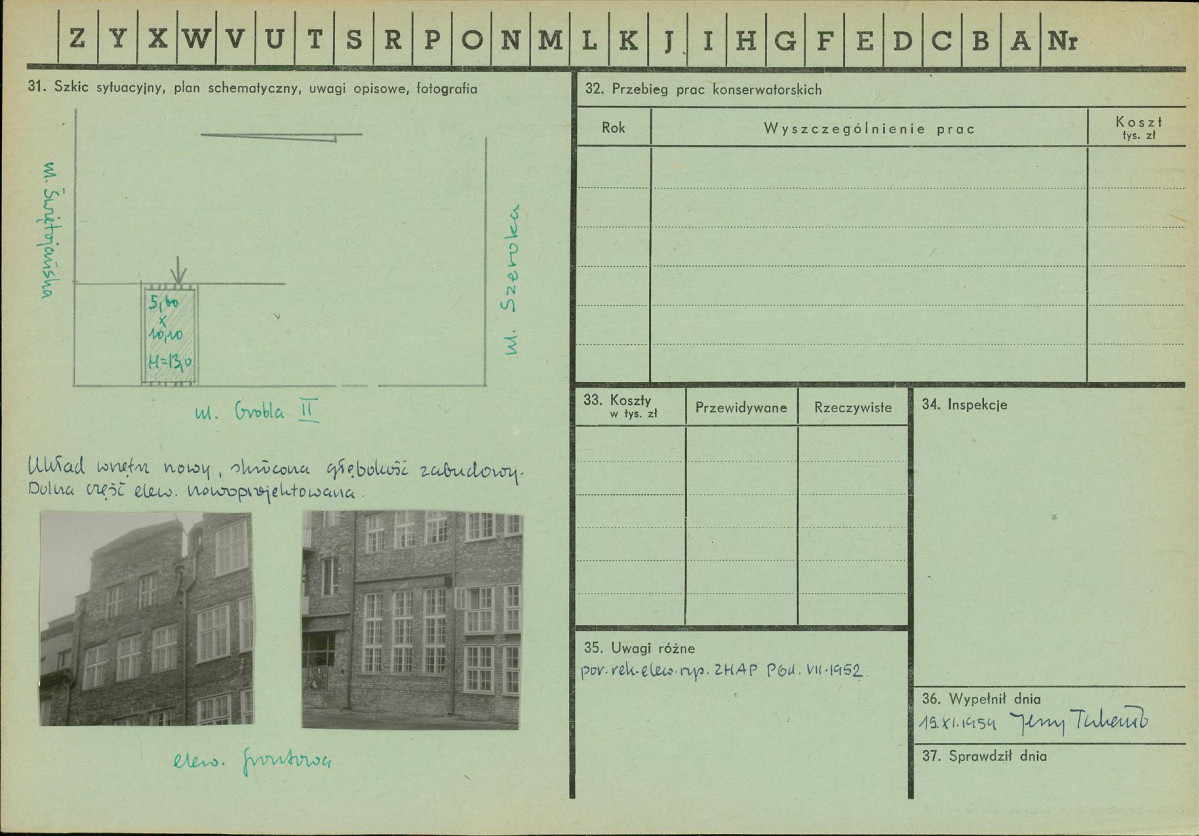 Z Y X W V U T S R P O N M L K J I H G F E D C B A Nr
31. Szkic sytuacyjny, plan schematyczny, uwagi opisowe, fotografia
ul. Świętojańska
ul. Szeroka
5,60
x
10,10
H=13,0
ul. Grobla II
Układ wnętrz nowy, skrócona głębokość zabudowy.
Dolna część elew. nowoprojektowana.
elew. frontowa
32. Przebieg prac konserwatorskich
Rok Wyszczególnienie prac Koszt
tys. zł
33. Koszty
w tys. zł
Przewidywane Rzeczywiste
34. Inspekcje
35. Uwagi różne
por. rek. elew. ryp. ZHAP PGd. VII.1952
36. Wypełnił dnia
15.XI.1959 Jerzy
37. Sprawdził dnia